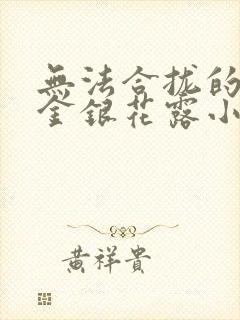 無法合拢的
金銀花露小
黄祥貴